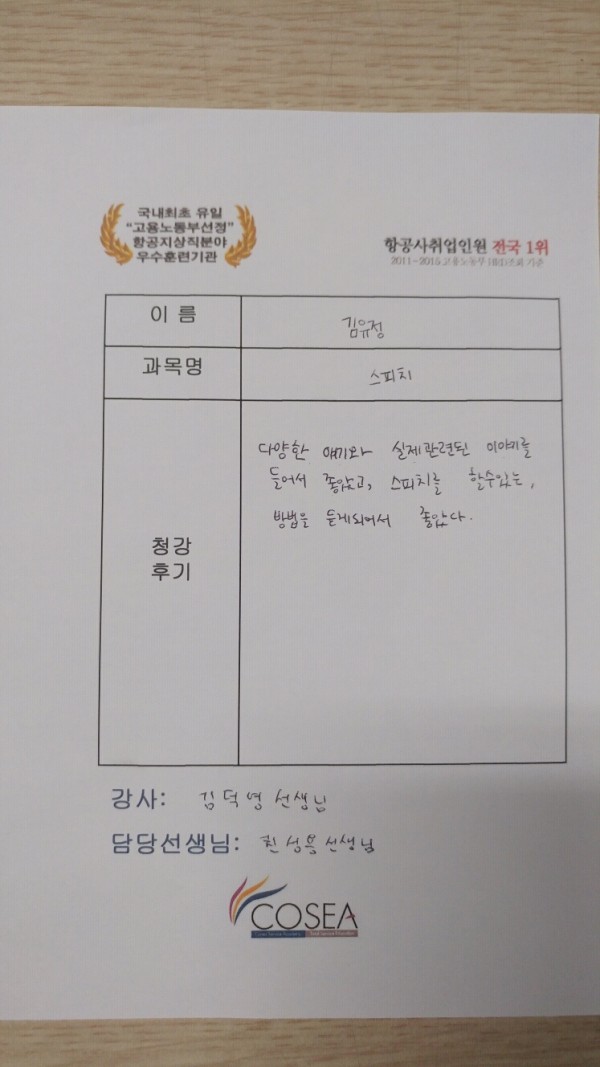 국내최초 유일
"고용노동부선정"
항공지상직분야
우수훈련기관
항공사취업인원 전국 1위
2011~2015고용노동부 HRD조회 기준
이 름
김유정
과목명
스피치
청강
후기
다양한 얘기와 실제관련된 이야기를
들어서 좋았고, 스피치를 할수있는,
방법을 듣게되어서 좋았다.
강사: 김덕영선생님
담당선생님: 선생님
COSEA